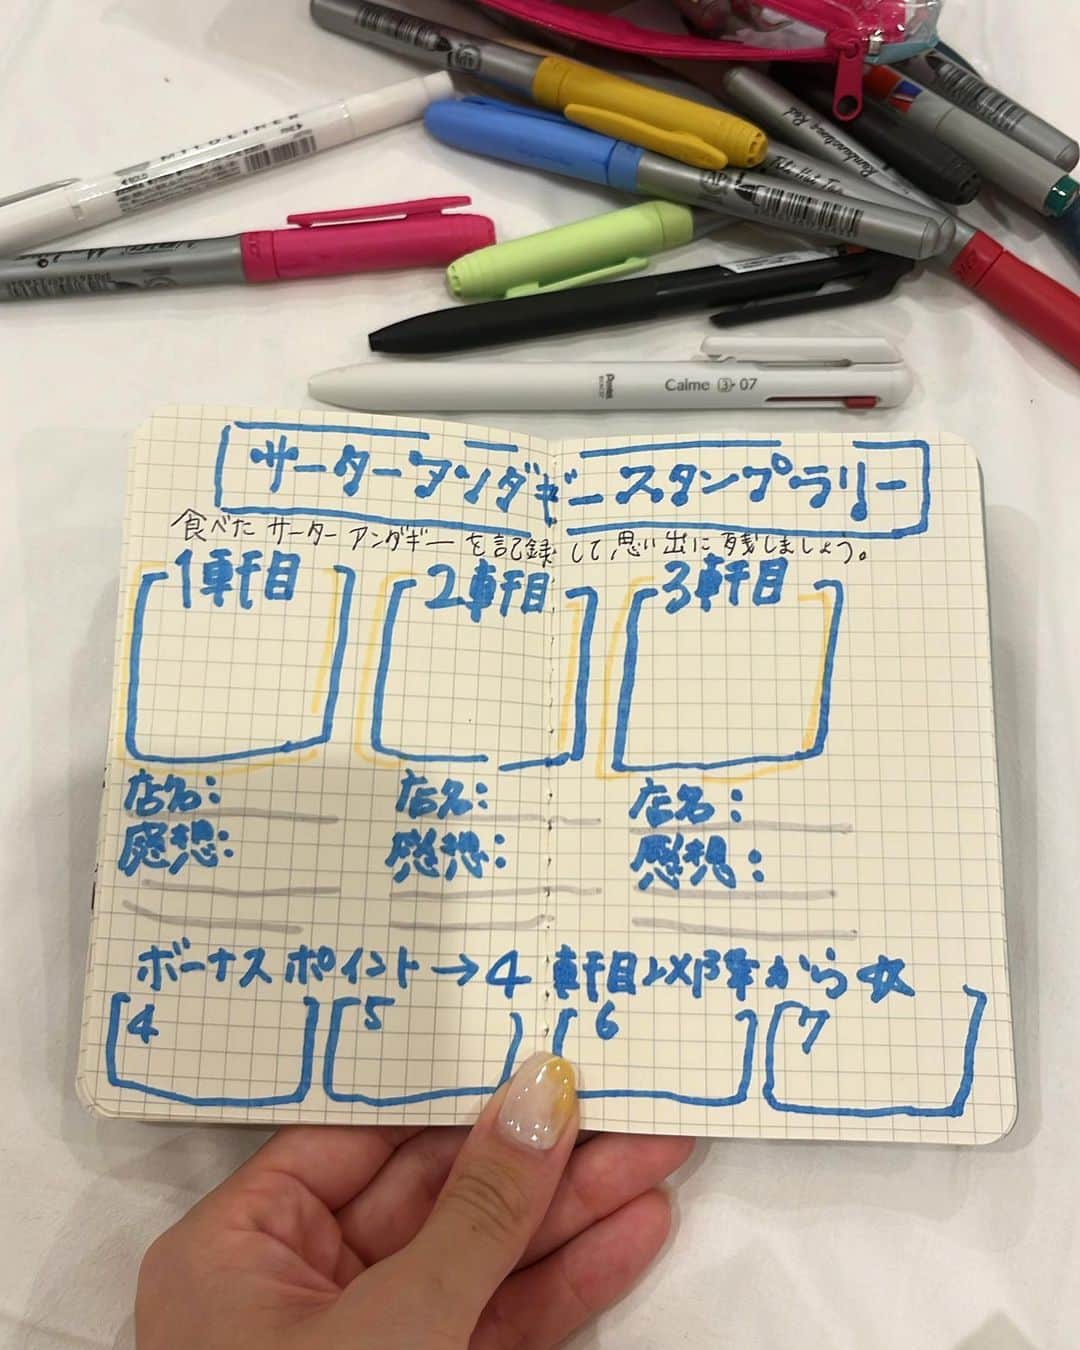 MILDLINER
BOLD
AP
Rambunctious Red
Pentel
Calme 3 07
サーターアンダギースタンプラリー
食べた サーターアンダギーを記録して思い出に残しましょう。
1軒目 2軒目 3軒目
店名: 店名: 店名:
感想: 感想: 感想:
ボーナスポイント→4軒目以降から
4 5 6 7